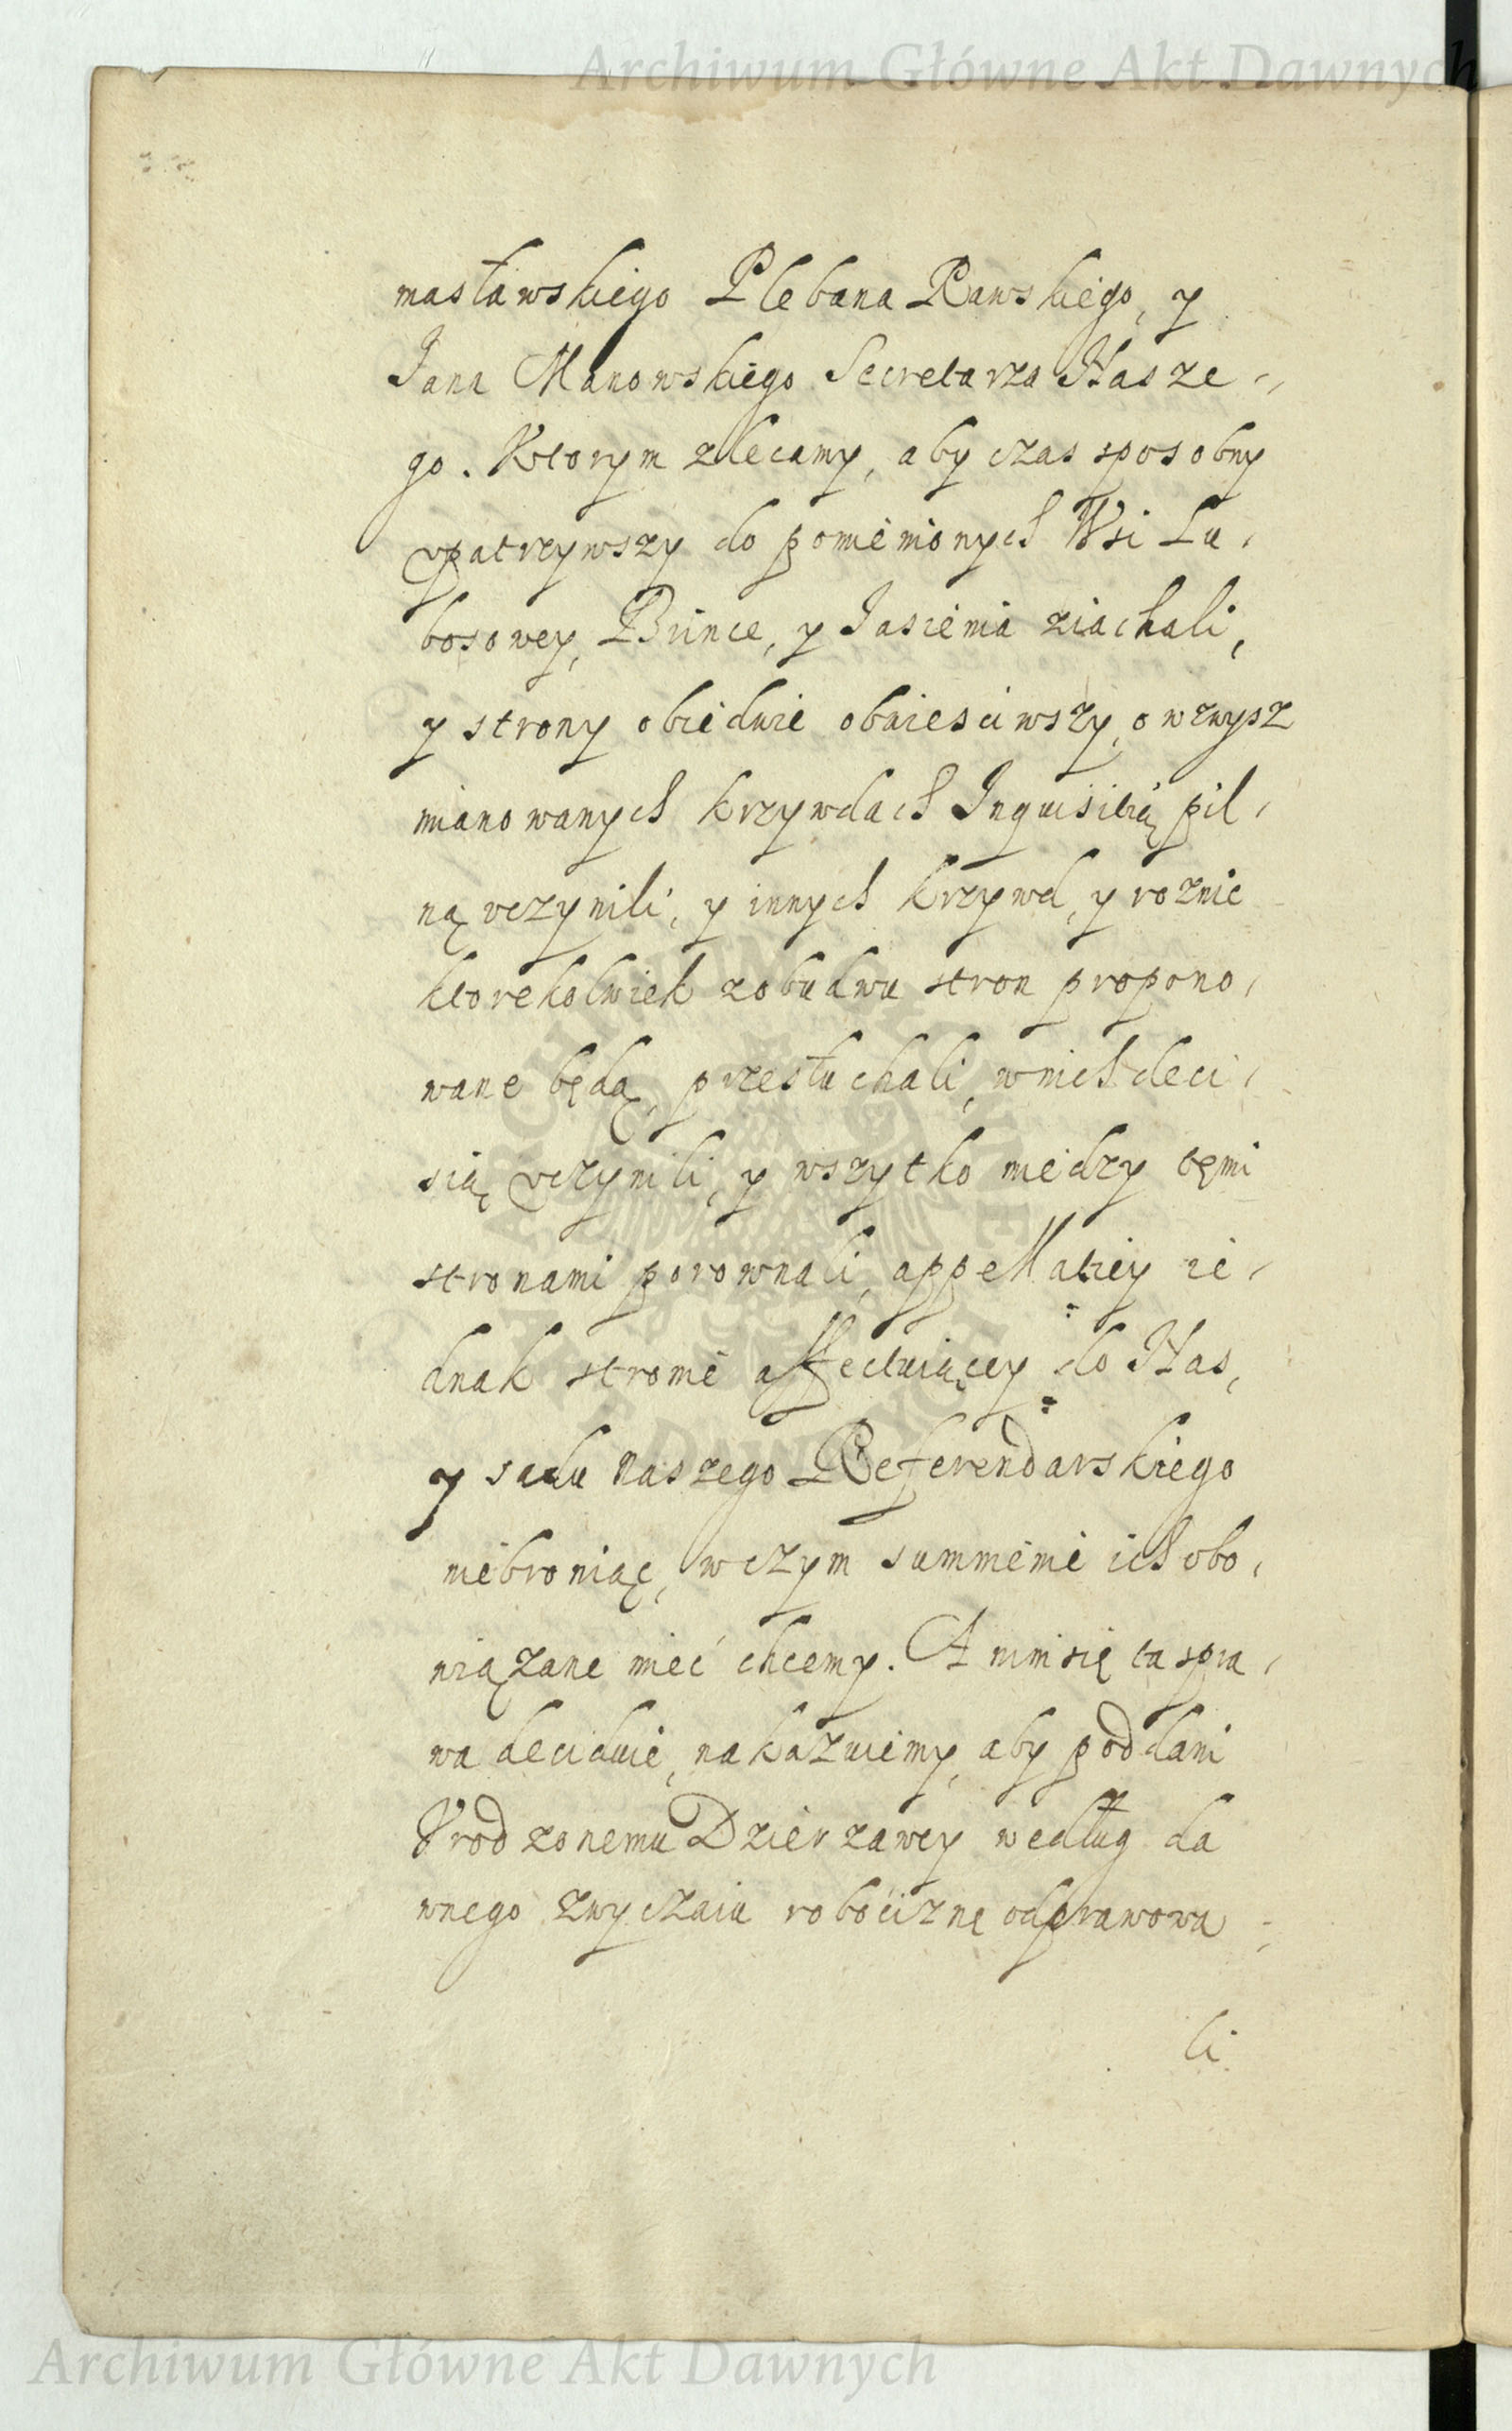 Archiwum Główne Akt Dawnych
masławskiego Plebana Rawskiego, y
Jana Manowskiego Secretarza Nasze-
go. Ktorym zlecamy, aby czas sposobny
vpatrzywszy do pomienionych Wsi Lu-
bosowey, Brince, y Jasienia ziachali,
y strony obiedwie obwiesciwszy, o wzwysz
mianowanych krzywdach Inquisitią pil-
ną vczynili, y innych krzywd, y roznic
ktorekolwiek zobudwu stron propono-
wane będą, przesłuchali, wnich deci-
sią vczynili, y wszytko miedzy tęmi
stronami porownali, appellatiey ie-
dnak stronie affectuiącey do Nas,
y sadu naszego Referendarskiego
niebroniąc, wczym summienie ich obo-
wiązane mieć chcemy. A nim się ta spra-
wa deciduie, nakazuiemy, aby poddani
Vrodzonemu Dzierzawcy według da
wnego zwyczaiu robociznę odprawowa-
li
Archiwum Główne Akt Dawnych